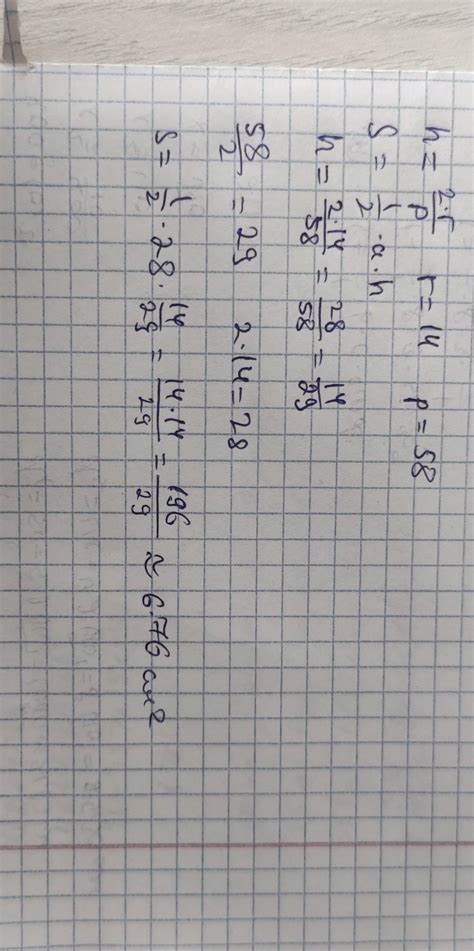 h = 2·r/p r = 14 p = 58
S = 1/2 · a · h
h = 2·14/58 = 28/58 = 14/29
58/2 = 29 2·14 = 28
S = 1/2 · 28 · 14/29 = 14·14/29 = 196/29 ≈ 6.76 см²